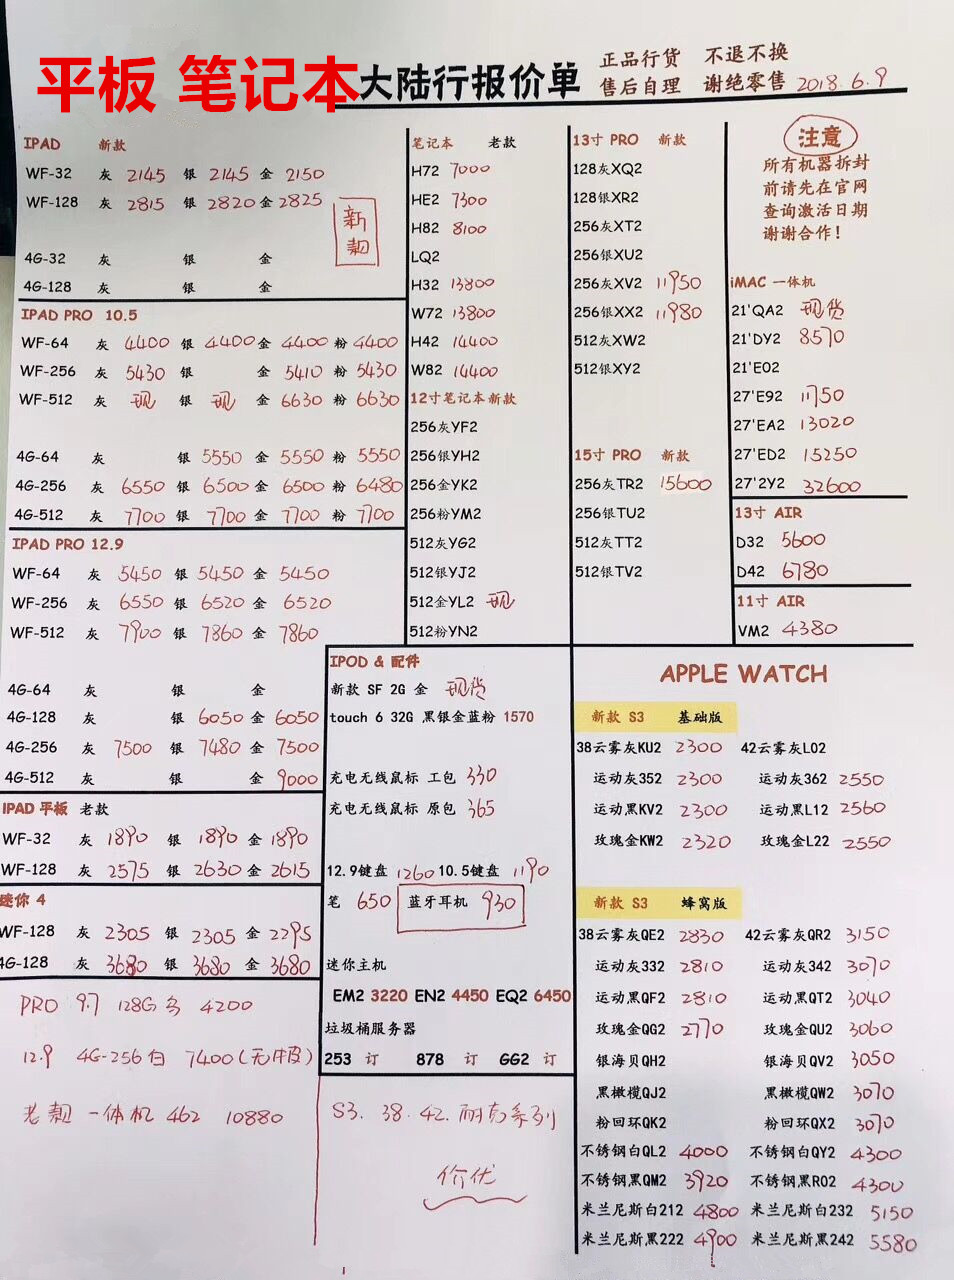 平板 笔记本
大陆行报价单
正品行货 不退不换
售后自理 谢绝零售 2018.6.9
IPAD 新款
WF-32 灰 2145 银 2145 金 2150
WF-128 灰 2815 银 2820 金 2825
新款
4G-32 灰 银 金
4G-128 灰 银 金
IPAD PRO 10.5
WF-64 灰 4400 银 4400 金 4400 粉 4400
WF-256 灰 5430 银 金 5410 粉 5430
WF-512 灰 现 银 现 金 6630 粉 6630
4G-64 灰 银 5550 金 5550 粉 5550
4G-256 灰 6550 银 6500 金 6500 粉 6480
4G-512 灰 7700 银 7700 金 7700 粉 7700
IPAD PRO 12.9
WF-64 灰 5450 银 5450 金 5450
WF-256 灰 6550 银 6520 金 6520
WF-512 灰 7900 银 7860 金 7860
4G-64 灰 银 金
4G-128 灰 银 6050 金 6050
4G-256 灰 7500 银 7480 金 7500
4G-512 灰 银 金 9000
IPAD 平板 老款
WF-32 灰 1890 银 1890 金 1890
WF-128 灰 2575 银 2630 金 2615
迷你 4
WF-128 灰 2305 银 2305 金 2295
4G-128 灰 3680 银 3680 金 3680
PRO 9.7 128G 4200
12.9 4G-256 白 7400(无牛皮)
老款 一体机 462 10880
笔记本 老款
H72 7000
HE2 7300
H82 8100
LQ2
H32 13800
W72 13800
H42 14400
W82 14400
12寸笔记本新款
256灰YF2
256银YH2
256金YK2
256粉YM2
512灰YG2
512银YJ2
512金YL2 现
512粉YN2
13寸 PRO 新款
128灰XQ2
128银XR2
256灰XT2
256银XU2
256灰XV2 11950
256银XX2 11980
512灰XW2
512银XY2
15寸 PRO 新款
256灰TR2 15600
256银TU2
512灰TT2
512银TV2
注意
所有机器拆封
前请先在官网
查询激活日期
谢谢合作！
iMAC 一体机
21'QA2 现货
21'DY2 8570
21'E02
27'E92 11750
27'EA2 13020
27'ED2 15250
27'2Y2 32600
13寸 AIR
D32 5600
D42 6780
11寸 AIR
VM2 4380
IPOD & 配件
新款 SF 2G 金 现货
touch 6 32G 黑银金蓝粉 1570
充电无线鼠标 工包 330
充电无线鼠标 原包 365
12.9键盘 1260 10.5键盘 1190
笔 650 蓝牙耳机 930
迷你主机
EM2 3220 EN2 4450 EQ2 6450
垃圾桶服务器
253 订 878 订 GG2 订
S3. 38. 42. 耐克系列
价优
APPLE WATCH
新款 S3 基础版
38云雾灰KU2 2300 42云雾灰L02
运动灰352 2300 运动灰362 2550
运动黑KV2 2300 运动黑L12 2560
玫瑰金KW2 2320 玫瑰金L22 2550
新款 S3 蜂窝版
38云雾灰QE2 2830 42云雾灰QR2 3150
运动灰332 2810 运动灰342 3070
运动黑QF2 2810 运动黑QT2 3040
玫瑰金QG2 2770 玫瑰金QU2 3060
银海贝QH2 银海贝QV2 3050
黑橄榄QJ2 黑橄榄QW2 3070
粉回环QK2 粉回环QX2 3070
不锈钢白QL2 4000 不锈钢白QY2 4300
不锈钢黑QM2 3920 不锈钢黑R02 4300
米兰尼斯白212 4800 米兰尼斯白232 5150
米兰尼斯黑222 4900 米兰尼斯黑242 5580